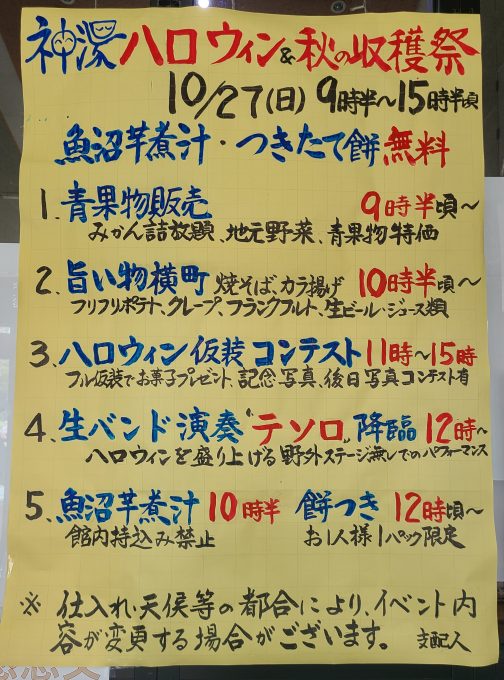 神湯ハロウィン&秋の収穫祭
10/27(日) 9時半〜15時半頃
魚沼芋煮汁・つきたて餅無料
1.青果物販売 9時半頃〜
みかん詰放題、地元野菜、青果物特価
2.旨い物横町 焼そば、カラ揚げ 10時半頃〜
フリフリポテト、クレープ、フランクフルト、生ビール・ジュース類
3.ハロウィン仮装コンテスト 11時〜15時
フル仮装でお菓子プレゼント、記念写真、後日写真コンテスト有
4.生バンド演奏“テソロ”降臨 12時〜
ハロウィンを盛り上げる野外ステージ無しでのパフォーマンス
5.魚沼芋煮汁 10時半 餅つき 12時頃〜
館内持込み禁止 お1人様1パック限定
※ 仕入れ・天候等の都合により、イベント内
容が変更する場合がございます。 支配人